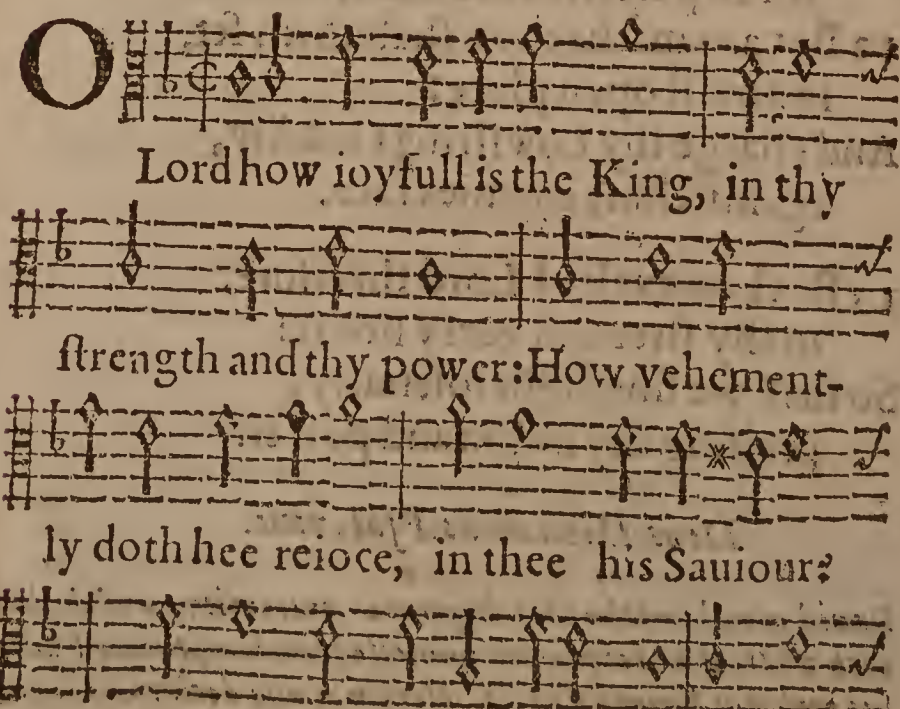 O
Lord how ioyfull is the King, in thy
ſtrength and thy power: How vehement-
ly doth hee reioce, in thee his Sauiour?